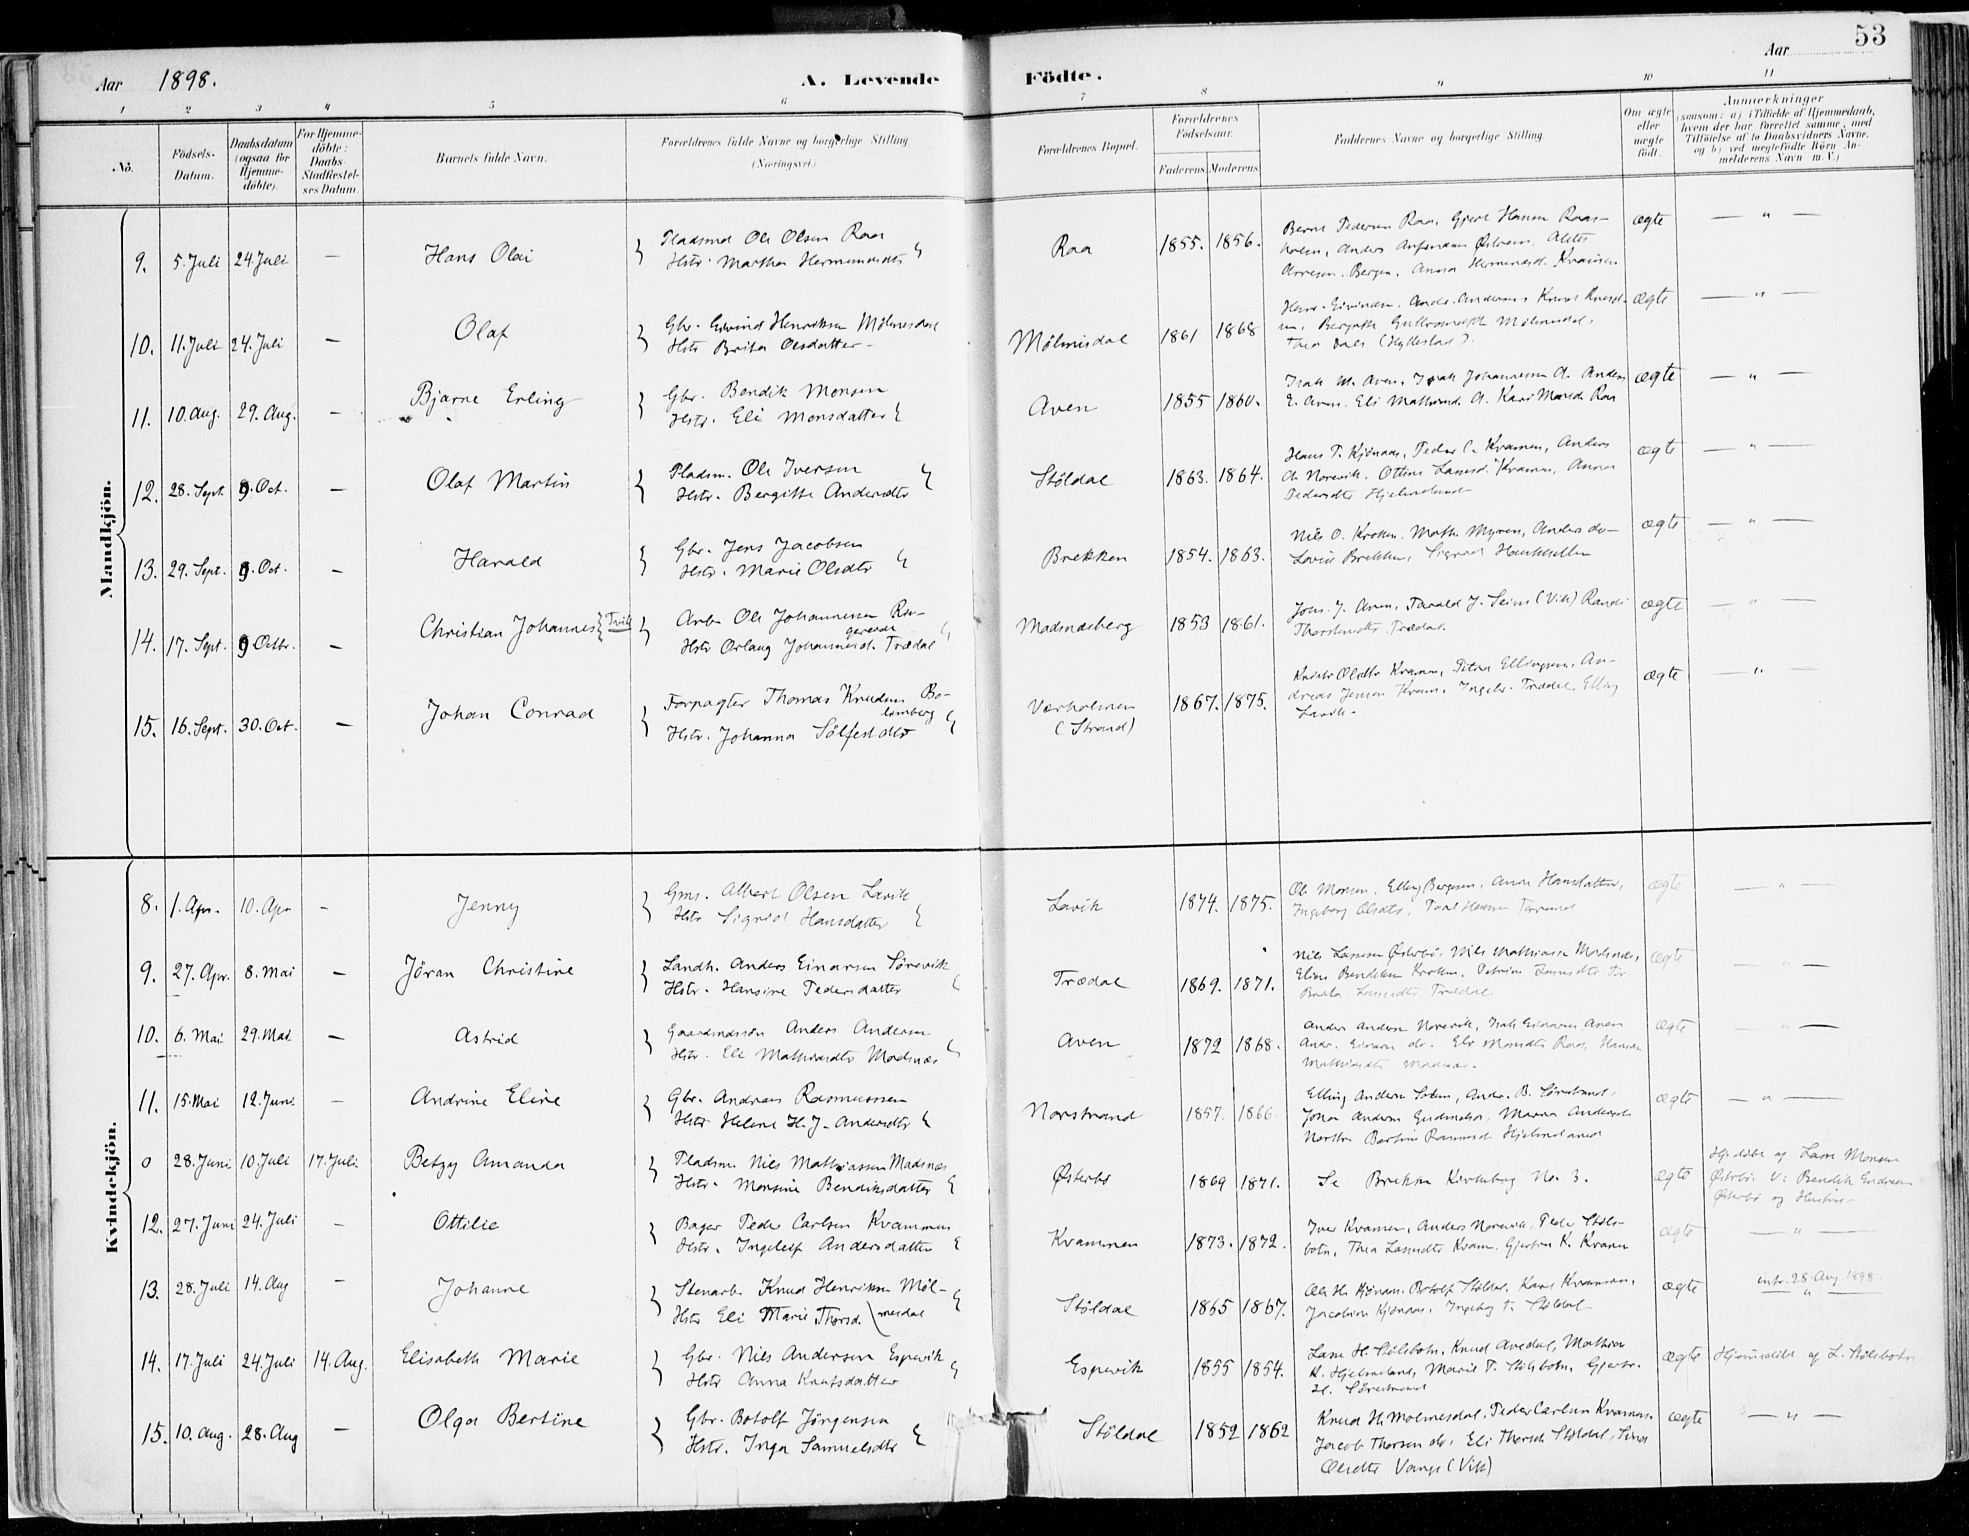 53
Aar 1898.
A. Levende Fødte.
Aar
1 2 3 4 5 6 7 8 9 10 11
No.
Födsels-Datum.
Daabsdatum (ogsaa for Hjemme-döbte).
For Hjemme-döbte: Daabs-Stadfæstel-ses Datum
Barnets fulde Navn.
Forældrenes fulde Navne og borgerlige Stilling (Næringsvei.)
Forældrenes Bopæl.
Forældrenes Födselsaar.
Faderens Moderens
Faddernes Navne og borgerlige Stilling.
Om ægte eller uægte födt.
Anmærkninger
(saasom: a) i Tilfælde af Hjemmedaab, hvem der har forrettet samme, med Tilföielse af to Daabsvidners Navne, og b) ved uægtefödte Börn An-melderens Navn m. V.)
Mandkjön.
9. 5. Juli 24. Juli — Hans Olai
Pladsmd Ole Olsen Raa
Hstr. Martha Hermundsdtr
Raa 1855. 1856.
Bernt Pedersen Raa, Gjert Hansen Raas-
holm, Anders
Bergen, Anna Kramen
ægte — " —
10. 11. Juli 24. Juli — Olaf
Gbr. Eivind Henriksen Mölmesdal
Hstr Brita Olsdatter
Mölmisdal 1861 1868
Mölmesdal,
Thea Dals (Hyllestad).
ægte — " —
11. 10. Aug. 29. Aug. — Bjarne Erling
Gbr. Bendik Monsen
Hstr. Eli Monsdatter
Aven 1855 1860.
Isak M. Aven, Isak Johannessen A. Anders
E. Aven. Eli A. Kari Monsd. Raa
ægte — " —
12. 28. Sept. 9. Oct. — Olaf Martin
Pladsm. Ole Iversen
Hstr. Bergitte Andersdtr
Stöldal 1863. 1864.
Hans P. Kjönaas, Peder C. Kramen, Anders
A. Norevik. Larsd. Kramen, Anna
Pedersdtr Hjelmeland
ægte — " —
13. 29. Sept. 9. Oct. — Harald
Gbr. Jens Jacobsen
Hstr. Marie Olsdtr
Brekken 1854. 1863.
Nils O. Kroken. Math. Myren, Anders do
Brekken, Sigrid
ægte — " —
14. 17. Sept. 9 Octbr. — Christian Johannes Tvill
Arb. Ole Johannessen
Hstr Orlaug Johannesd. Trædal
Madsnæsberg 1853 1861.
Johs. J. Aven, Harald J. Seim (Vik) Randi
Trædal.
ægte — " —
15. 16. Sept. 30. Oct. — Johan Conrad
Forpagter Thomas Knudsen Bo-
Hstr. Johanna Sölfestdtr
Værholmen
(Strand)
1867. 1875.
Olsdtr Kramen, Petra Ellingsen, An-
dreas Jensen Kramen, Ingebr. Trædal, Elling
Lavik.
ægte — " —
Kvindekjön.
8. 1. Apr. 10. Apr — Jenny
Gms. Albert Olsen Lavik
Hstr Sigrid Hansdatter
Lavik 1874. 1875.
Ole Monsen, Elling Bergesen, Anna Hansdatter,
Ingeborg Olsdtr, Hansen
ægte — " —
9. 27. Apr. 8. Mai — Jöran Christine
Landh. Anders Einarsen Sörevik
Hstr. Hansine Pedersdatter
Trædal 1869. 1871.
Nils Lassesen Østerbö, Nils Mathiassen Madsnæs,
Elias Bendiksen Kroken, Petrine
Brita Trædal
ægte — " —
10. 6. Mai 29. Mai — Astrid
Gaardmdssön Anders Andersen
Hstr. Eli Mathiasdtr Madsnæs
Aven 1872 1868.
Anders Andersen Norevik, Isak Einarsen Aven
Andr. Einarsen do. Eli Monsdtr Raa, Hansine
Mathiasdtr Madsnæs.
ægte — " —
11. 15. Mai 12. Juni — Andrine Eline
Gbr. Andreas Rasmussen
Hstr Helene H. J. Andersdtr
Norstrand 1857. 1866.
Elling Andersen Andr. B. Sörestrand,
Andersen Marna Andersd.
Bertine Rasmusd. Hjelmeland
ægte — " —
0 28. Juni 10. Juli 17. Juli Betzy Amanda
Pladsm. Nils Mathiassen Madsnæs
Hstr. Monsine Bendiksdatter
Østerbö 1869 1871.
Se Brekke Kirkebog No. 3.
ægte
Hj.döbt af Lasse Monsen
Østerbö. V: Bendik Endresen
Østerbö og Hustru
12. 27. Juni 24. Juli — Ottilie
Bager Peder Carlsen Krammen
Hstr. Ingeleif Andersdatter
Krammen 1873. 1872.
Iver Kramen, Anders Norevik, Peder Stöls-
botn, Thea Lassesdtr Kramen. Gjertine K. Kramen
ægte — " —
13. 28. Juli 14. Aug — Johanne
Stenarb. Knud Henriksen Möl-
mesdal
Hstr Eli Marie Thorsd.
Stöldal 1865 1867.
Ole H. Kjönaas, Botolf Stöldal, Karl Kramen,
Jacobine Kjönaas, Ingeborg T. Stöldal
ægte
intr. 28. Aug 1898.
— " —
14. 17. Juli 24. Juli 14. Aug. Elisabeth Marie
Gbr. Nils Andersen Espevik
Hstr Anna Knutsdatter
Espevik 1855 1854.
Lasse H. Stölsbotn, Knud Avedal, Mathias
K. Hjelmeland, Marie T. Stölsbotn, Gjertr.
H. Sörestrand
ægte
Hjemmedöbt af L. Stölsbotn
15. 10. Aug. 28. Aug — Olga Bertine
Gbr. Botolf Jörgensen
Hstr. Inga Samuelsdtr
Stöldal 1852 1862
Knud H. Molmesdal, Peder Carlsen Kramen,
Jacob Thorsen do. Eli Thorsd. Stöldal,
Olsdtr Vange (Vik)
ægte — " —